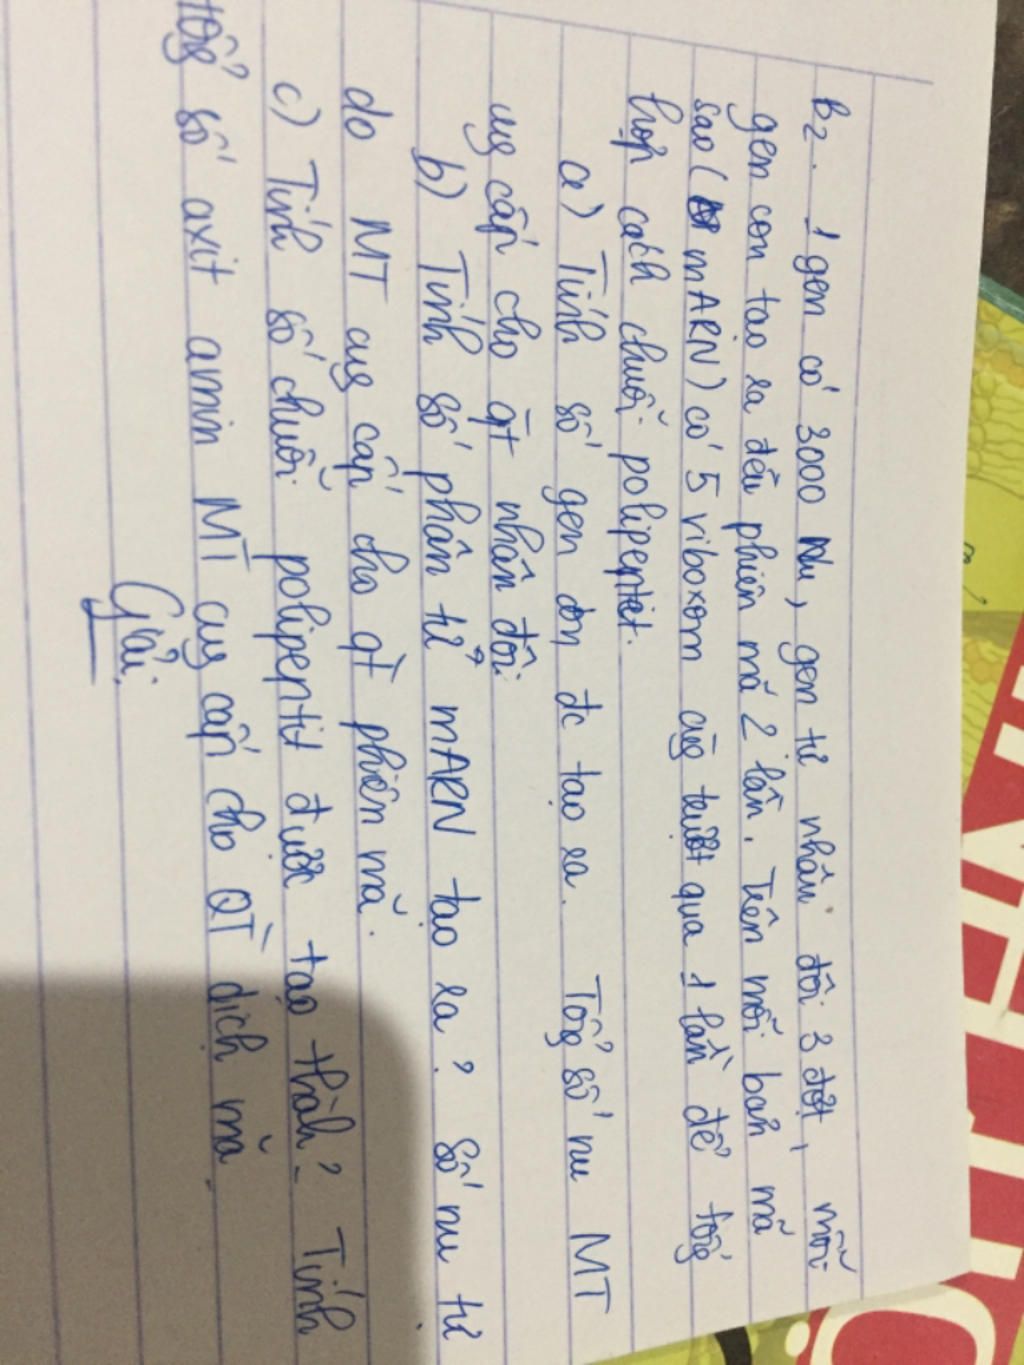 B2. 1 gen có 3000 Nu, gen tự nhân đôi 3 đợt, mỗi
gen con tạo ra đều phiên mã 2 lần. Trên mỗi bản mã
sao (mARN) có 5 riboxom cùg trượt qua 1 lần để tổg
hợp cách chuỗi polipeptit.
a) Tính số gen đơn đc tạo ra. Tổg số nu MT
cug cấp cho qt nhân đôi
b) Tính số phân tử mARN tạo ra? Số nu tự
do MT cug cấp cho qt phiên mã.
c) Tính số chuỗi polipeptit được tạo thành? Tính
tổg số axit amin MT cug cấp cho QT dịch mã.
Giải.